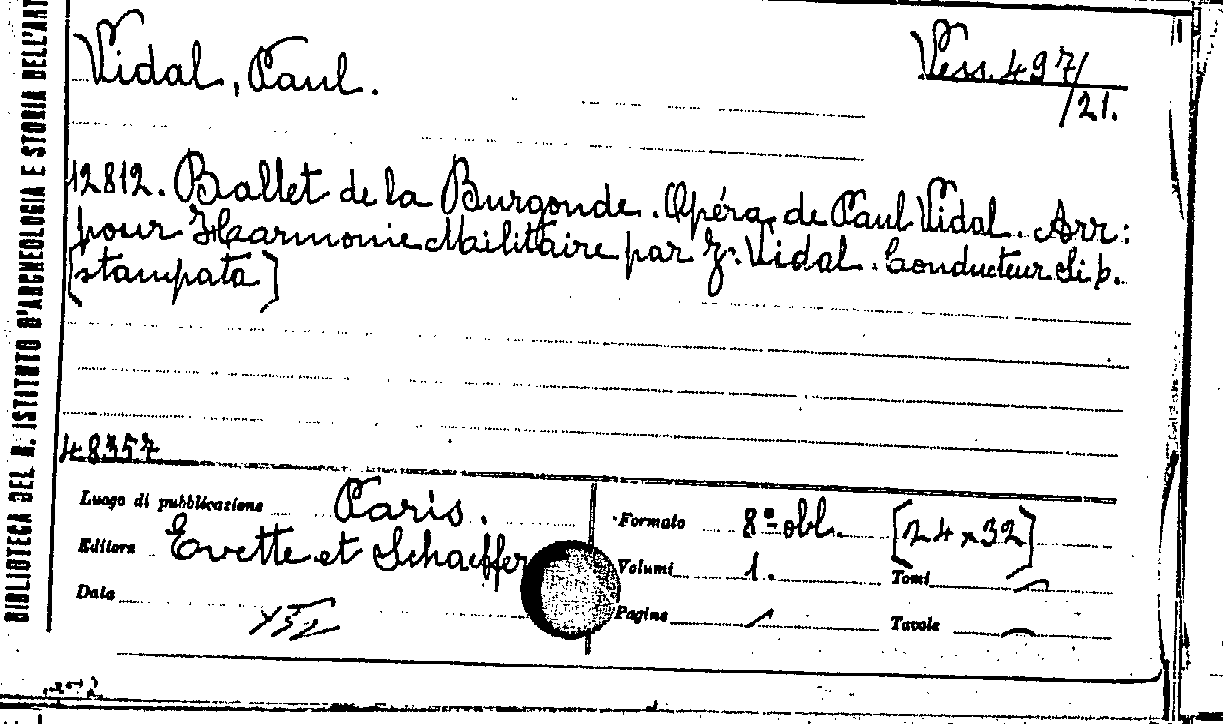 BIBLIOTECA DEL R. ISTITUTO D'ARCHEOLOGIA E STORIA DELL'ART
Vidal, Paul.
Vess. 497/
/21.
12812. Ballet de la Burgonde. Opéra de Paul Vidal. Arr:
pour Harmonie Militaire par J. Vidal. Conducteur Si b.
[stampata]
48357
Luogo di pubblicazione Paris.
Editore Evette et Schaeffer
Data
Formato 8º obl. [24x32]
Volumi 1. Tomi
Pagine Tavole